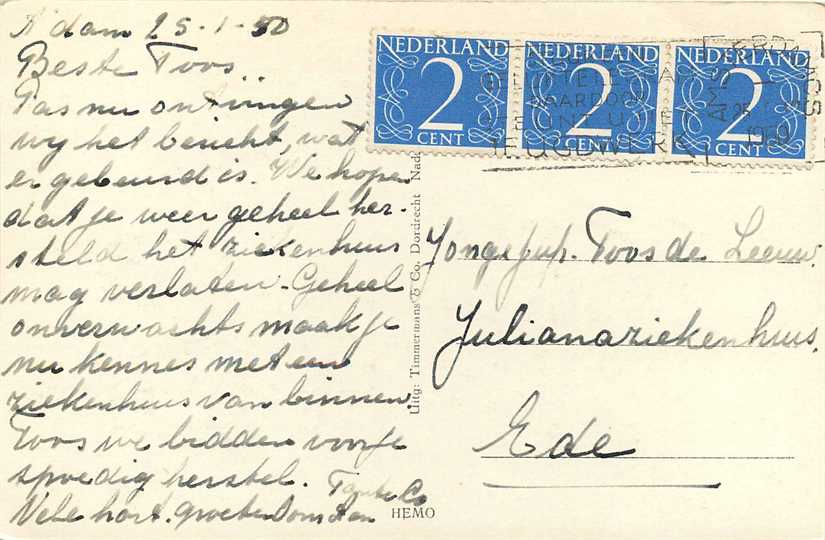 A'dam 25-1-50
Beste Toos..
Pas nu ontvingen
wij het bericht, wat
er gebeurd is. We hopen
dat je weer geheel her-
steld het ziekenhuis
mag verlaten. Geheel
onverwachts maak je
nu kennes met een
ziekenhuis van binnen.
Toos we bidden voor je
spoedig herstel.
Tante Co
Vele hart. groeten Oom Jan
NEDERLAND
2
CENT
NEDERLAND
2
CENT
NEDERLAND
2
CENT
AMSTERDAM CS
25
1950
Uitg: Timmermans & Co. Dordrecht Nad
HEMO
Jongejuf. Toos de Leeuw.
Julianaziekenhuis.
Ede